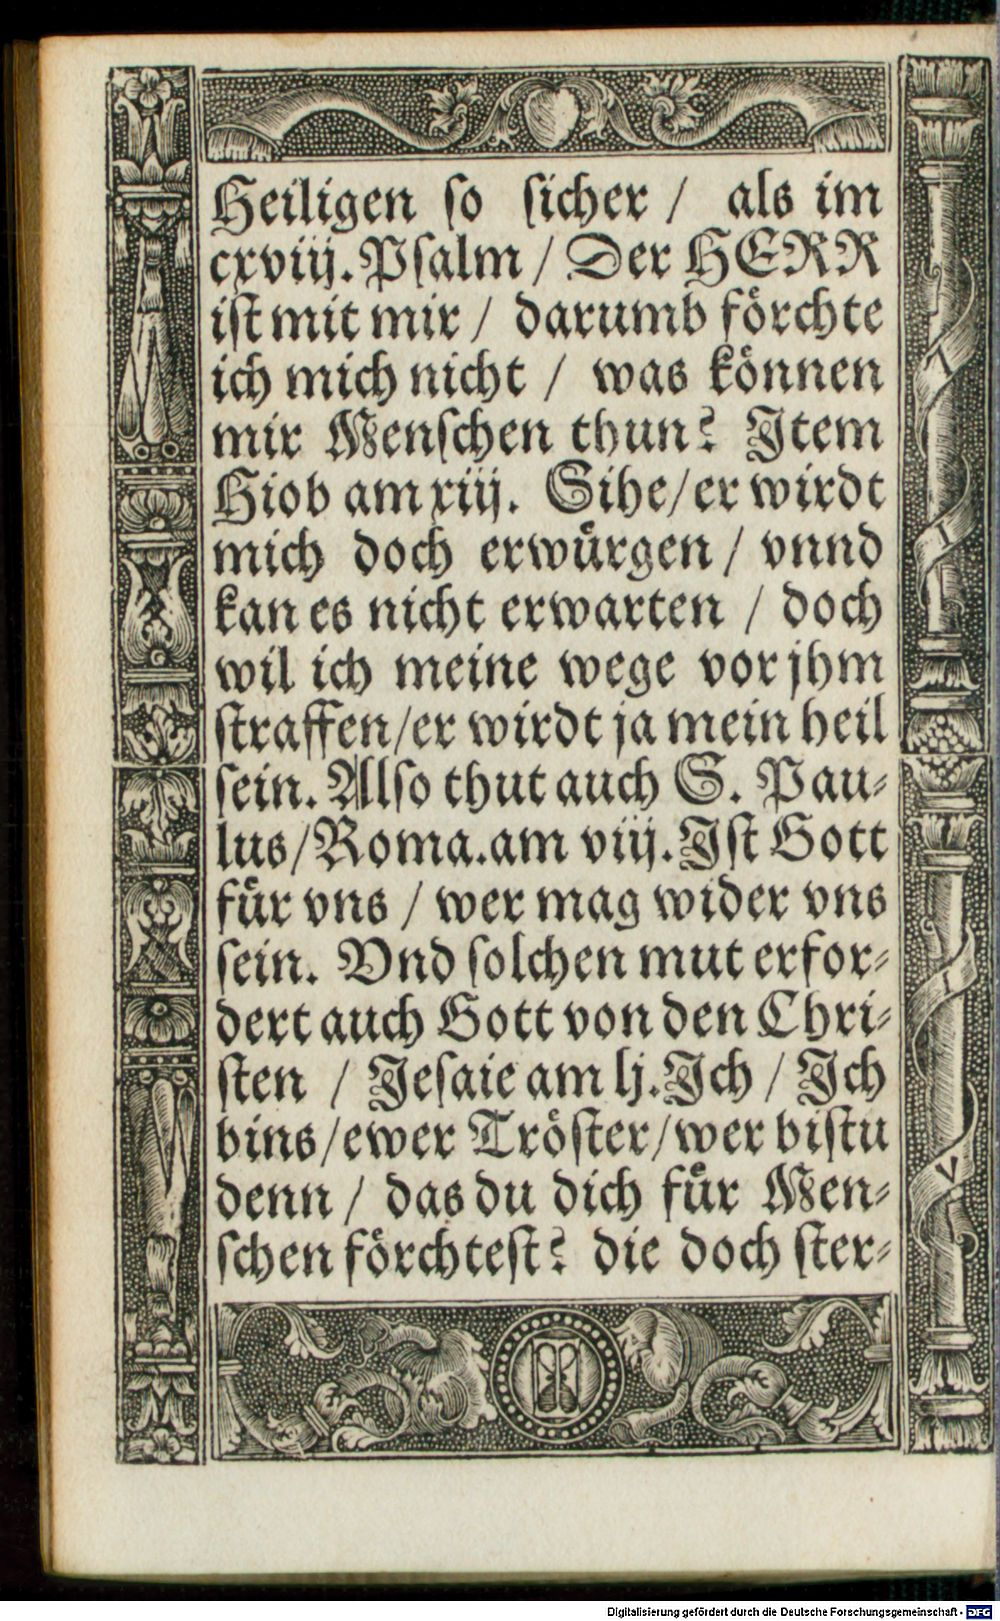 Heiligen so sicher / als im
cxviij. Psalm / Der HERR
ist mit mir / darumb förchte
ich mich nicht / was können
mir Menschen thun? Item
Hiob am xiij. Sihe/er wirdt
mich doch erwürgen / vnnd
kan es nicht erwarten / doch
wil ich meine wege vor jhm
straffen/er wirdt ja mein heil
sein. Also thut auch S. Pau-
lus/Roma.am viij. Ist Gott
für vns / wer mag wider vns
sein. Vnd solchen mut erfor-
dert auch Gott von den Chri-
sten / Jesaie am lj. Ich / Ich
bins/ewer Tröster/wer bistu
denn / das du dich für Men-
schen förchtest? die doch ster-
Digitalisierung gefördert durch die Deutsche Forschungsgemeinschaft - DFG